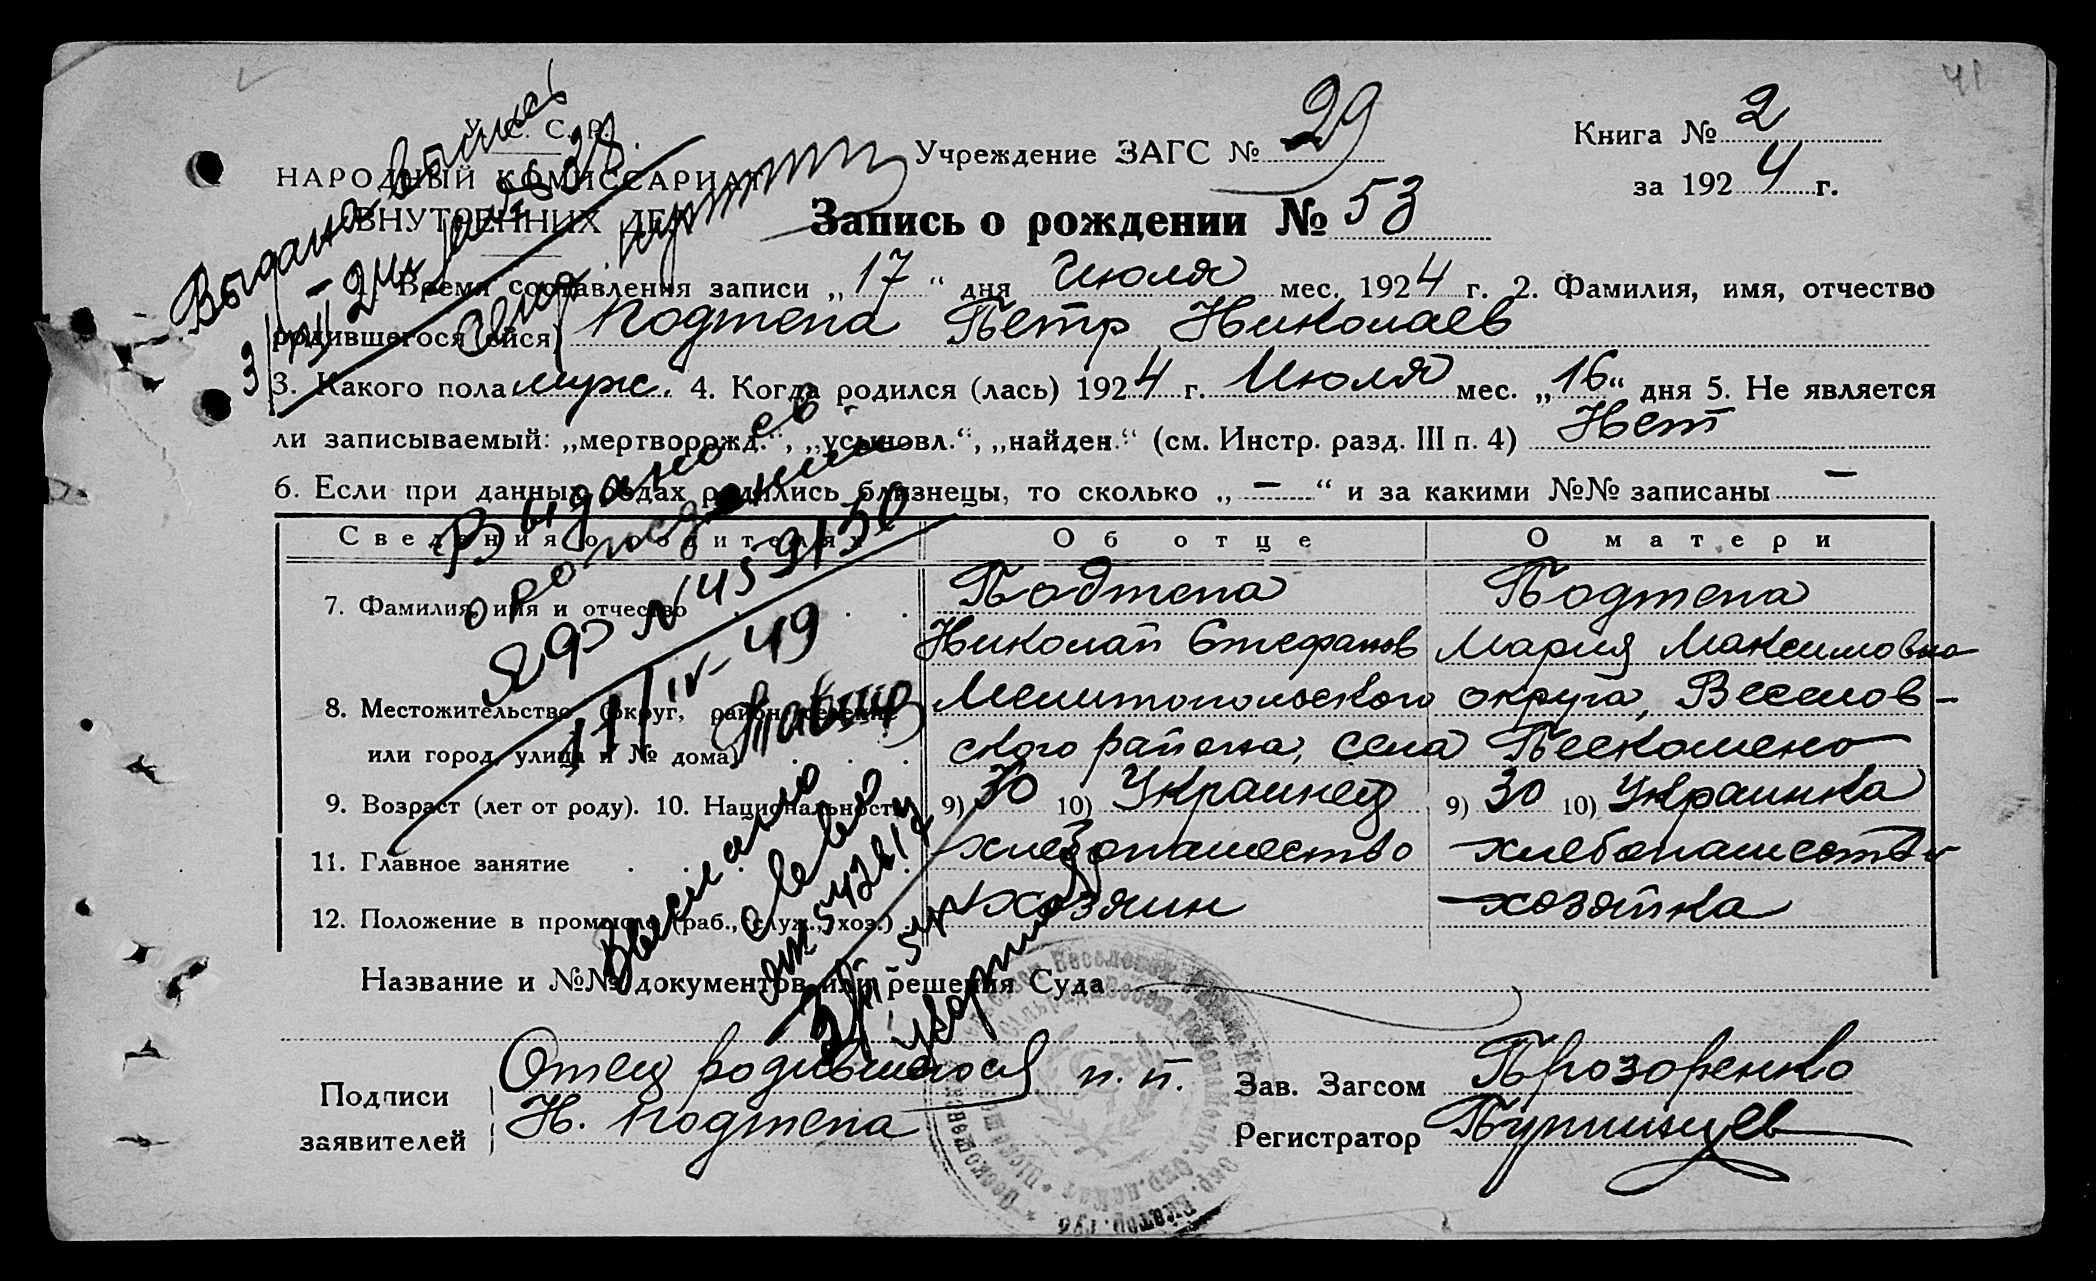 У. С. С. Р.
НАРОДНЫЙ КОМИССАРИАТ
ВНУТРЕННИХ ДЕЛ
Учреждение ЗАГС № 29
Книга № 2
за 1924 г.
41
Запись о рождении № 53
Время составления записи „17“ дня Июля мес. 1924 г. 2. Фамилия, имя, отчество
родившегося (ейся) Подтепа Петр Николаев
3. Какого пола муж. 4. Когда родился (лась) 1924 г. Июля мес. „16“ дня 5. Не является
ли записываемый: „мертворожд.“, „усыновл.“, „найден.“ (см. Инстр. разд. III п. 4) Нет
6. Если при данных родах родились близнецы, то сколько „ – “ и за какими №№ записаны –
Сведения о родителях Об отце О матери
7. Фамилия, имя и отчество Подтепа Подтепа
Николай Стефанов Мария Максимовна
8. Местожительство (округ, район, селение Мелитопольского округа, Веселов-
или город, улица и № дома) ского района, села Пескошено
9. Возраст (лет от роду). 10. Национальность 9) 30 10) Украинец 9) 30 10) Украинка
11. Главное занятие хлебопашество хлебопашество
12. Положение в промысле (раб., служ., хоз.) хозяин хозяйка
Название и №№ документов или решения Суда
Подписи заявителей
Отец родившегося н. п.
Н. Подтепа
Зав. Загсом Прозоренко
Регистратор
Выдана выпись
Выдано св.
о рождении
ЯФ № 459130
11/IV-49